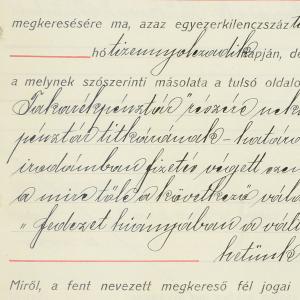 megkeresésére ma, azaz egyezerkilenczszáz
hó tizennyolczadik napján, de
a melynek szószerinti másolata a tulsó oldalo
Takarékpénztár" részére nek
pénztár titkárának - határi
irodámban fizetés végett szem
a mire tőle a következő vála
"fedezet hiányában a váló
hetünk
Miről, a fent nevezett megkereső fél jogai